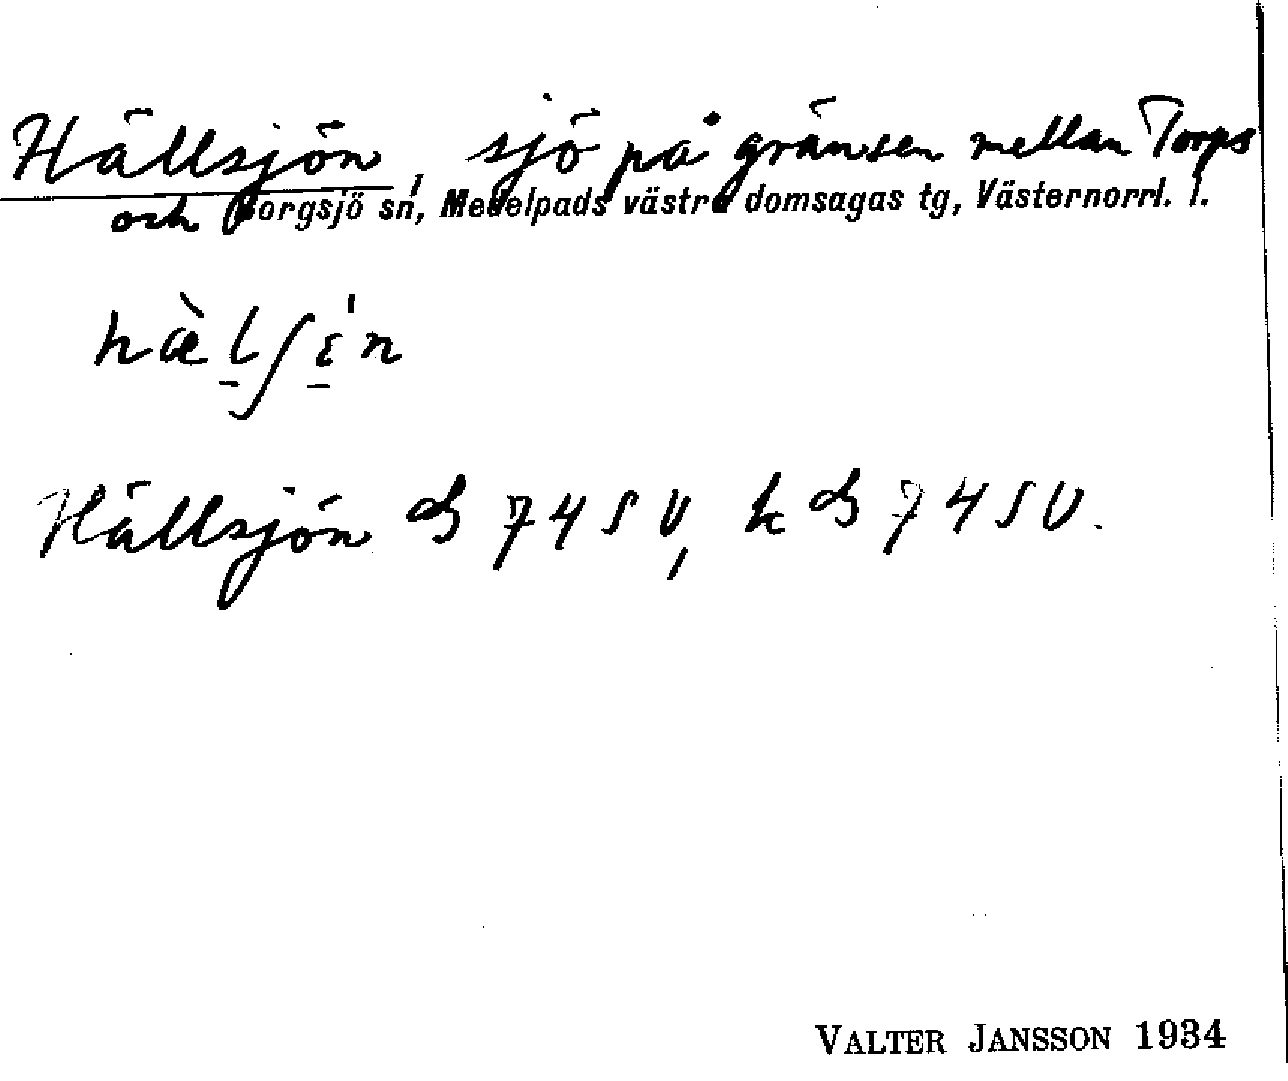 Hällsjön, sjö på gränsen mellan Torps
och Borgsjö sn, Medelpads västra domsagas tg, Västernorrl. l.
Hällsjön 74 SV, k 74 SV.
VALTER JANSSON 1934